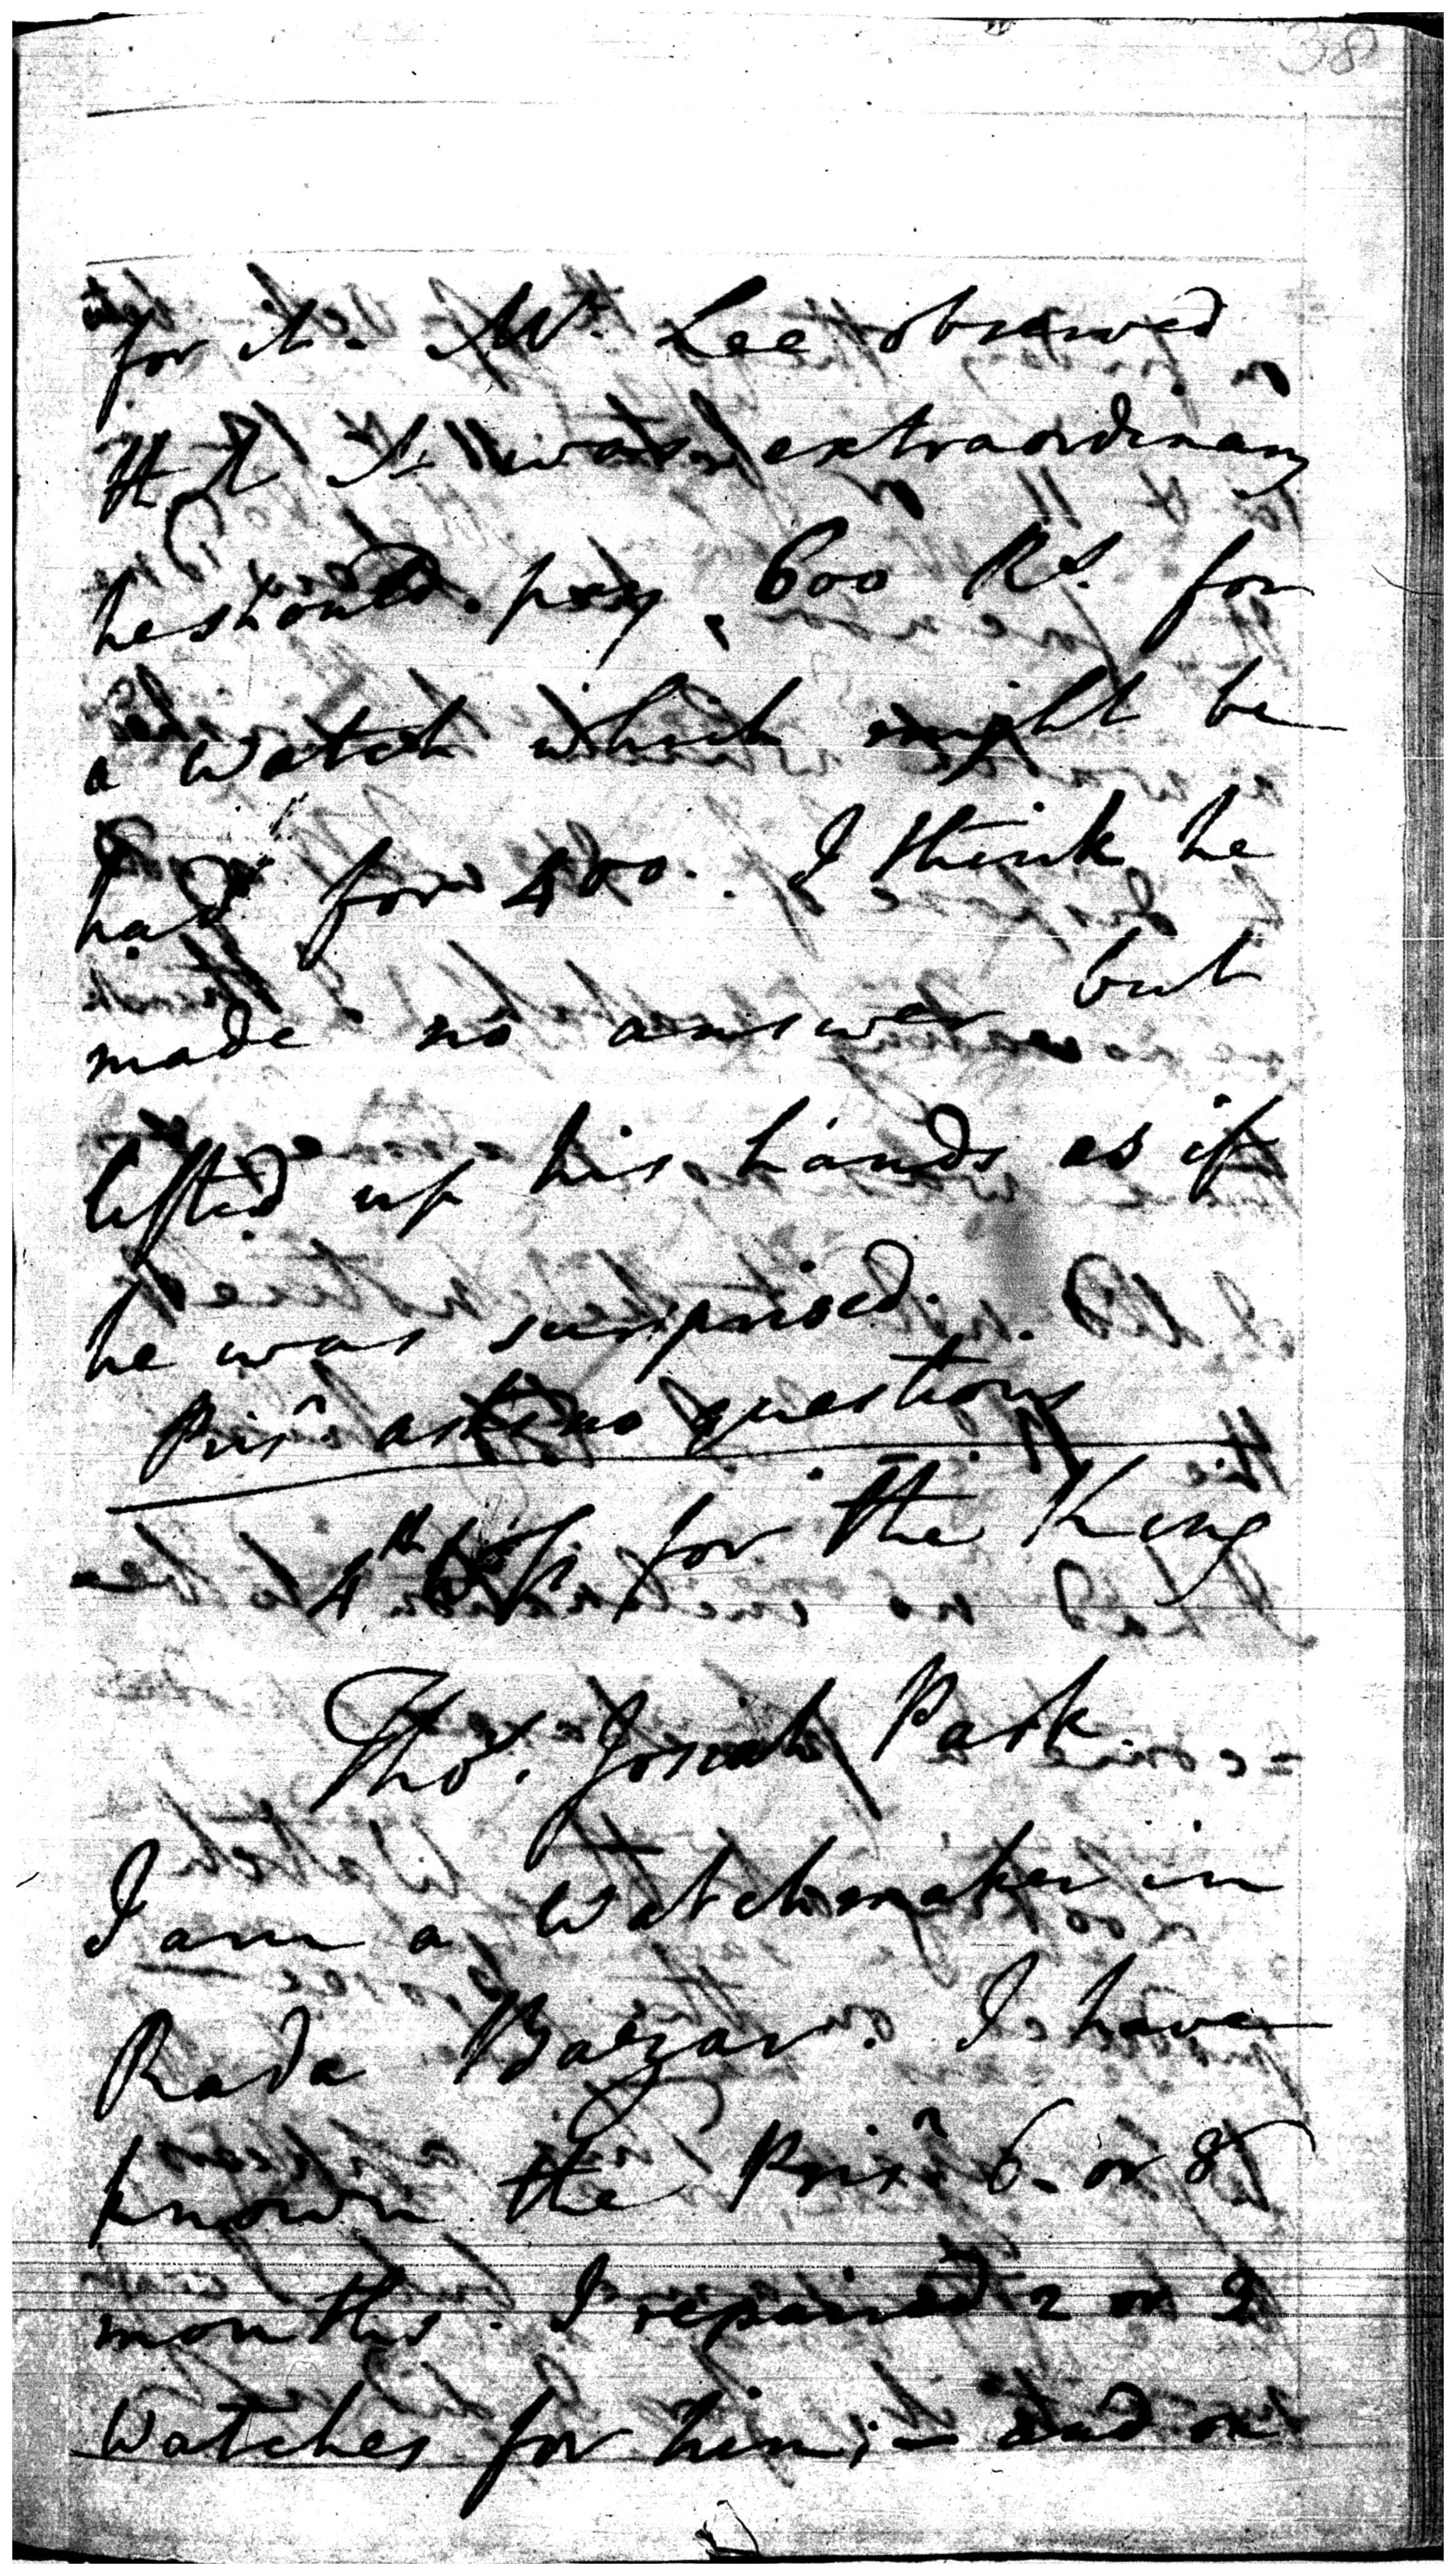 38
for it. Mr. Lee observed
tht it was extraordinary
he should pay 600 Rs. for
a watch which might be
had for 400. I think he
made no answer but
lifted up his hands as if
he was surprised.
Prisr. asks no questions
4th for the King
Thos. Josiah Park
I am a watchmaker in
Rada Bazar. I have
known the Prisr. 6 or 8
months. I repaired 2 or 3
watches for him; - and on